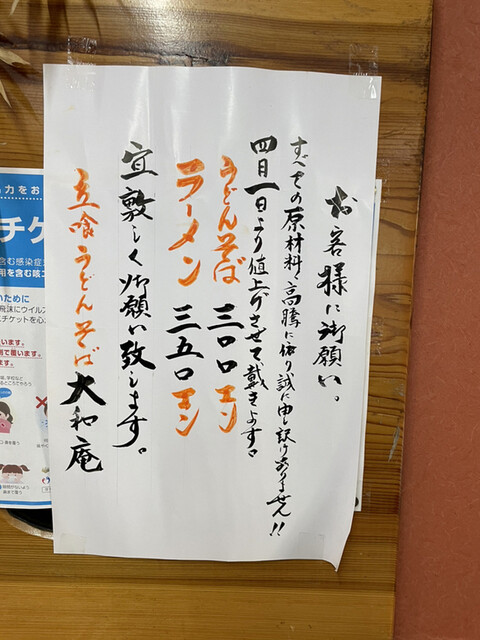 お客様に御願い。
すべての原材料高騰に依り誠に申し訳けありません!!
四月一日より値上げさせて戴きます。
うどんそば 三〇〇エン
ラーメン 三五〇エン
宜敷しく御願い致します。
立喰うどんそば 大和庵
力をお
チケ
含む感染症
用を含む咳エ
いために
飛沫にウイル
チケットを心
います。
用で覆います。
います。